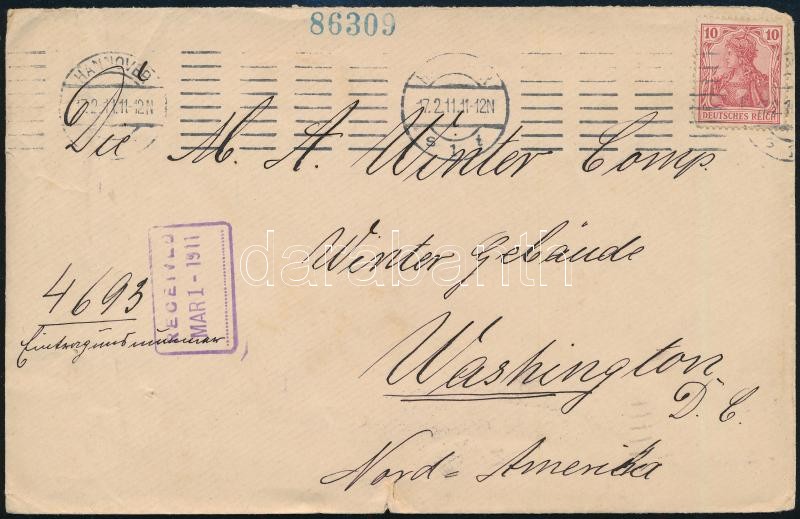 86309
10 10
DEUTSCHES REICH
HANNOVER
17.2.11.11-12N
17.2.11.11-12N
Die M. A. Winter Comp.
Winter Gebäude
darabanth
RECEIVED
MAR 1 - 1911
4693
Eintragunsnummer
Washington
D. C.
Nord=Amerika